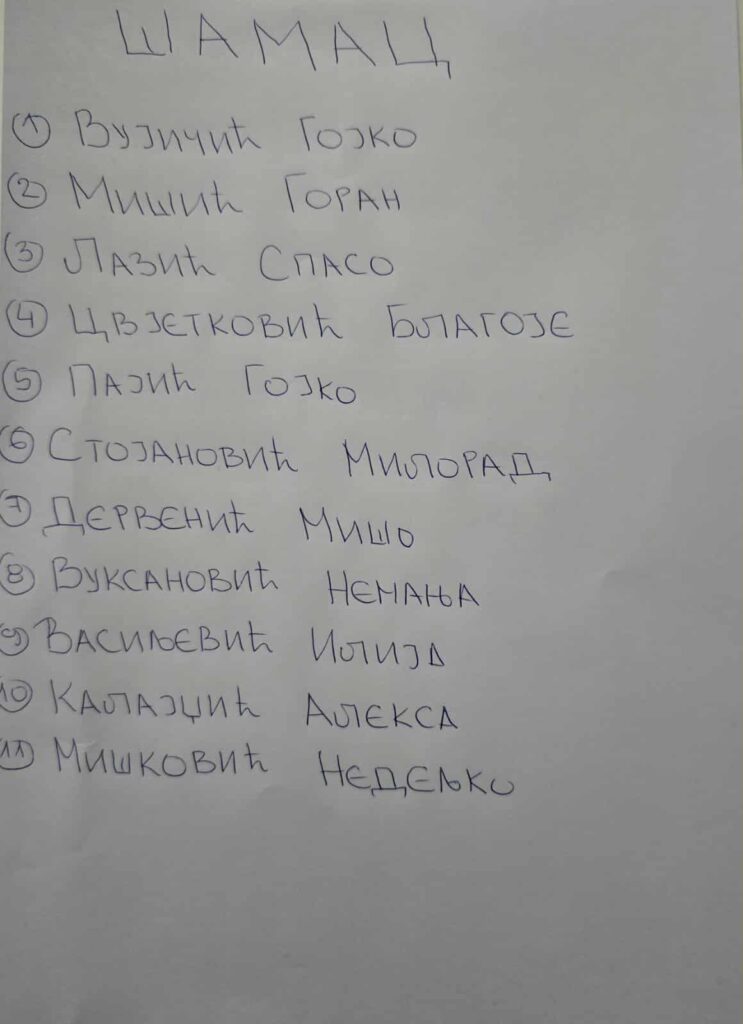 ШАМАЦ
1 Вујичић Гојко
2 Мишић Горан
3 Лазић Спасо
4 Цвјетковић Благоје
5 Пајић Гојко
6 Стојановић Милорад
7 Дервенић Мишо
8 Вуксановић Немања
9 Васиљевић Илија
10 Калајџић Алекса
11 Мишковић Недељко